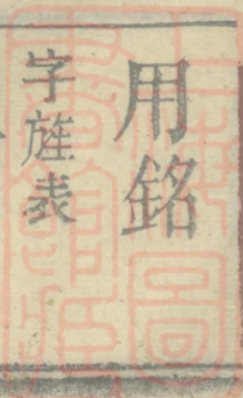 用銘
字旌表